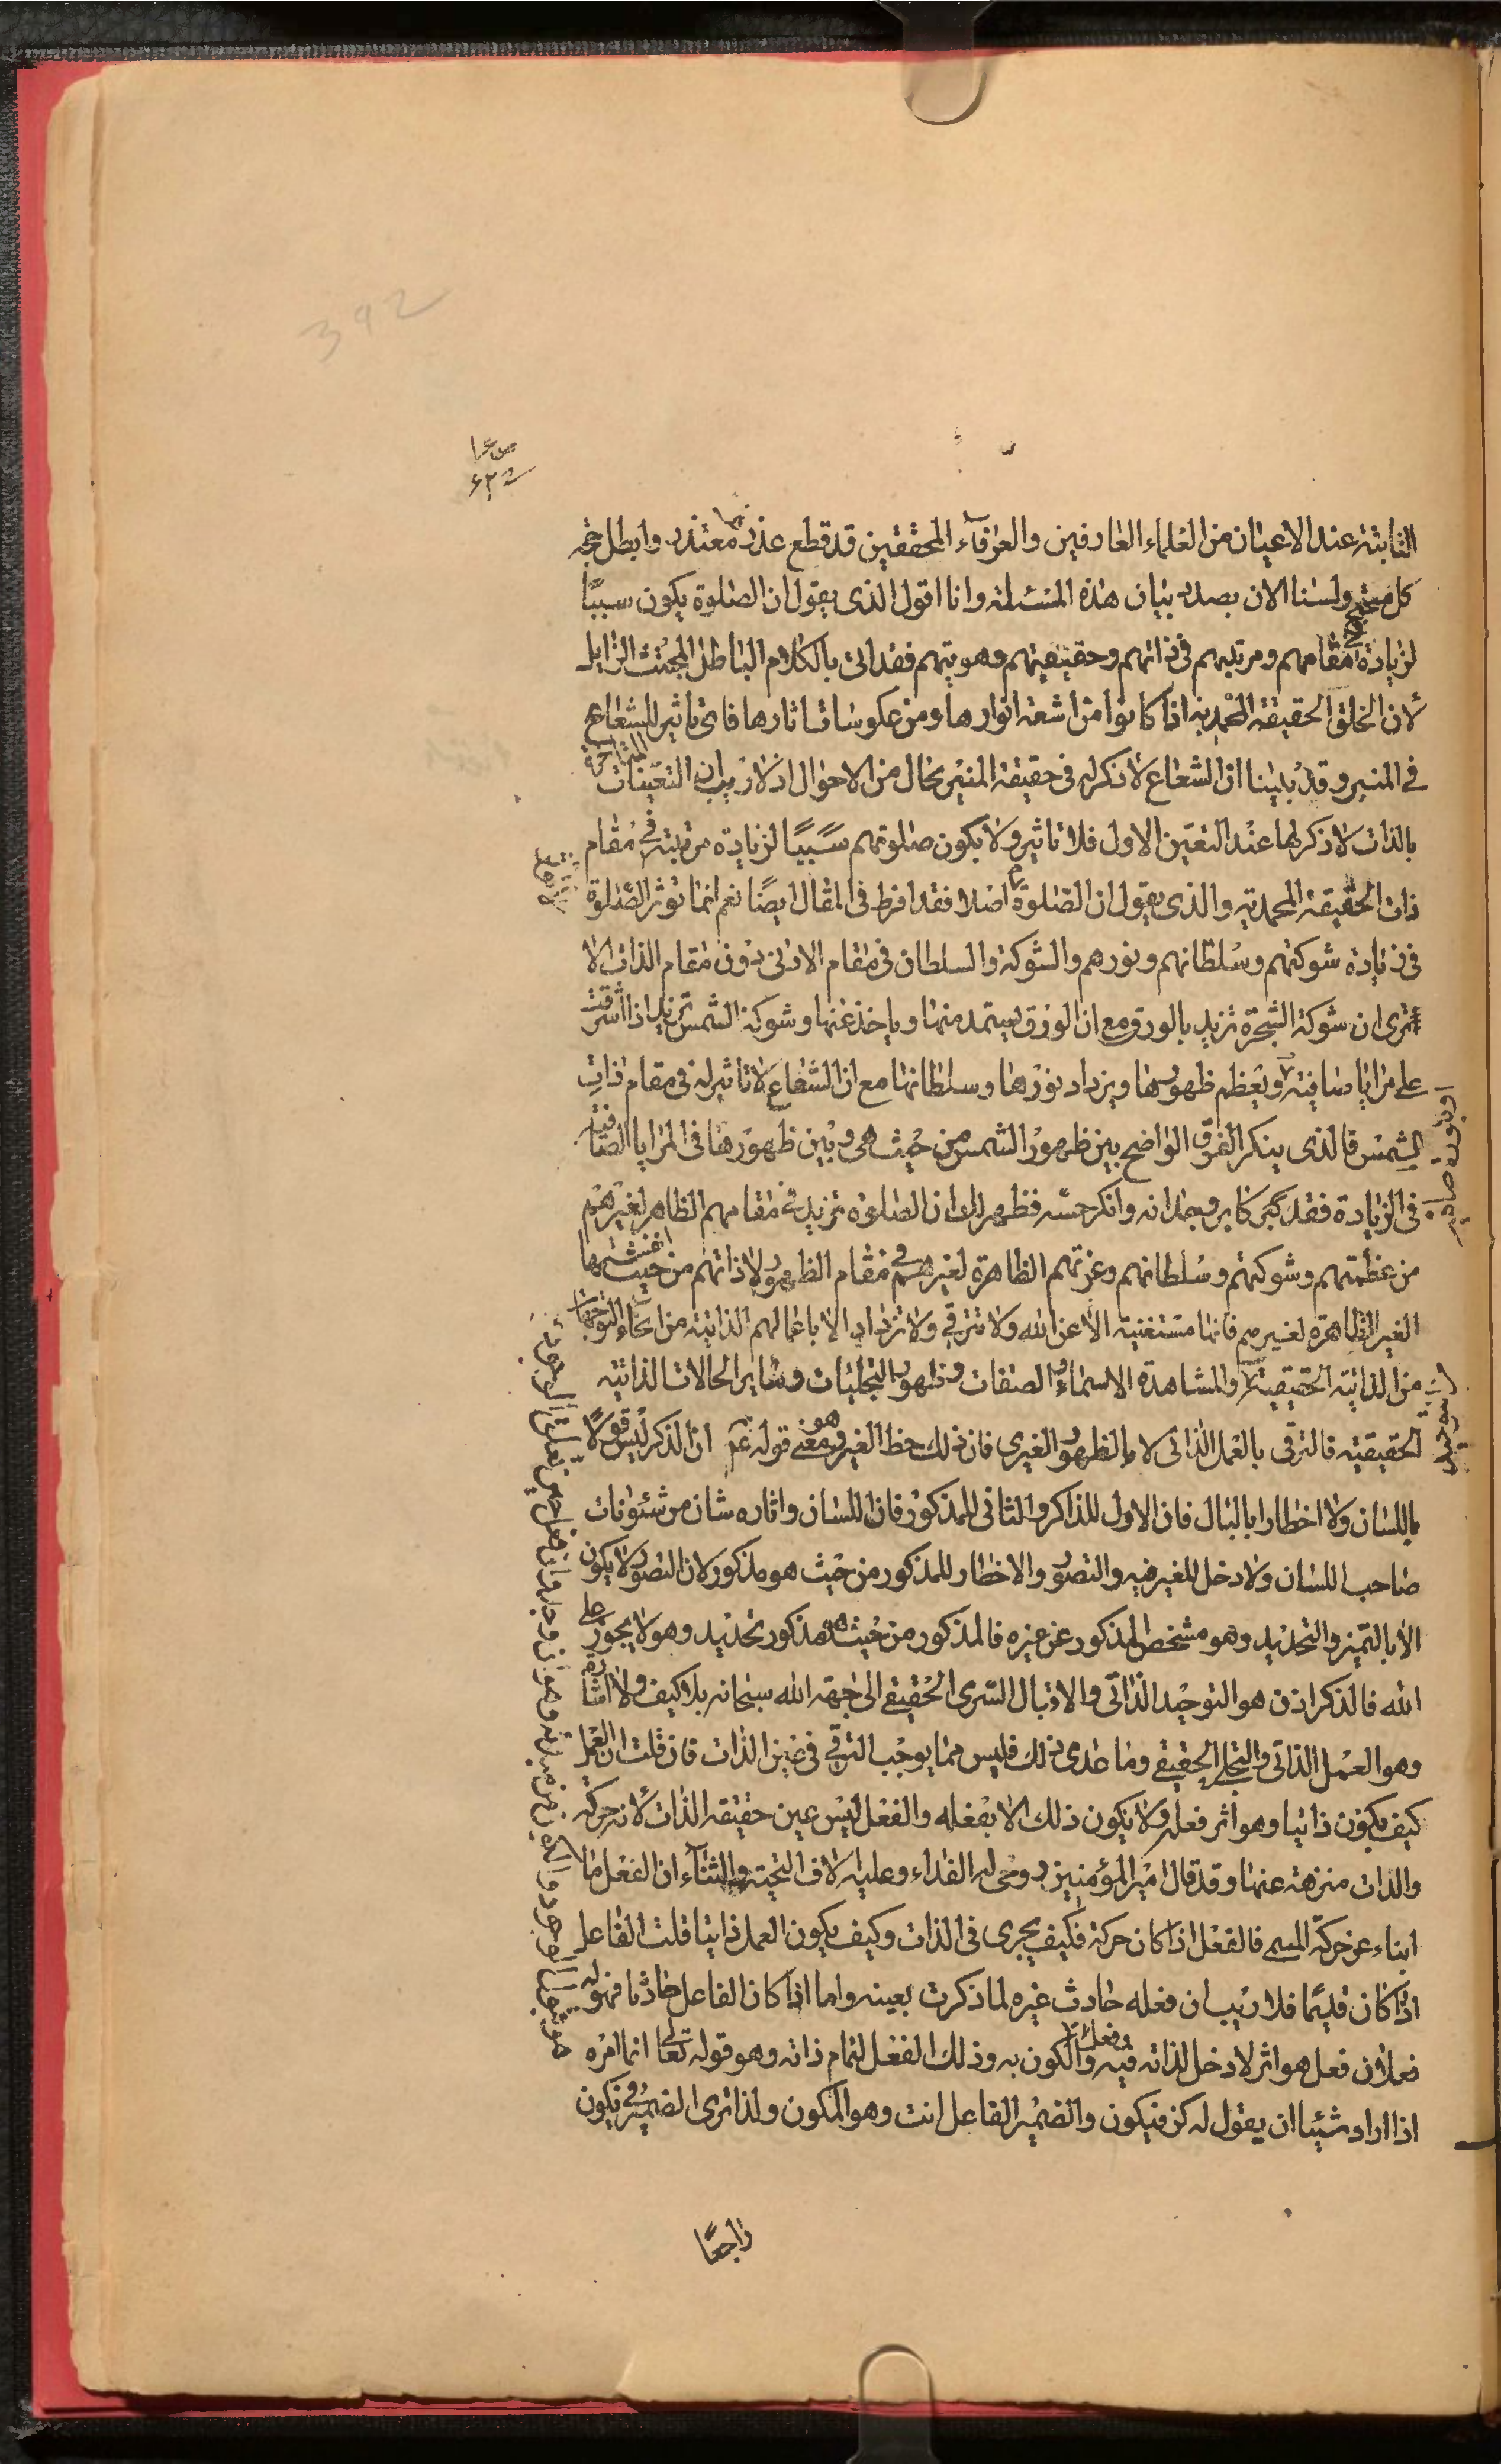 الثابتة عند الاعيان من العلماء العارفين والعرفآء المحققين قد قطع عذر معتذر وابطل حجة
كل محتج ولسنا الان بصدد بيان هذه المسئلة وانا اقول الذى يقول ان الصلوة يكون سببًا
لزيادة مقامهم ومرتبتهم فى ذاتهم وحقيقتهم وهويتهم فقد اتى بالكلام الباطل المجتث الزايل
لأن الخلق الحقيقة المحمدية اذا كانوا من اشعة انوارها ومن عكوسات اثارها فاى تاثير للشعاع
في المنير وقد بينا ان الشعاع لا ذكر له فى حقيقة المنير بحال من الاحوال اذ لا ريب ان التعينات المتاخرة
بالذات لا ذكر لها عند التعين الاول فلا تاثير ولا يكون صلوتهم سببًا لزيادة مرتبة فى مقام
ذات الحقيقة المحمدية والذى يقول ان الصلوة اصلا فقد افرط فى المقال ايضًا نعم انما تؤثر الصلوة
فى زيادة شوكتهم وسلطانهم ونورهم والشوكة والسلطان فى مقام الادنى دون مقام الذات الا
ترى ان شوكة الشجرة تزيد بالورق مع ان الورق يستمد منها وياخذ عنها وشوكة الشمس تزيد اذا اشرقت
على مرايا صافية ويعظم ظهورها ويزداد نورها وسلطانها مع ان الشعاع لا تاثير له فى مقام ذات
الشمس فالذى ينكر الفرق الواضح بين ظهور الشمس من حيث هى وبين ظهورها فى المرايا الصافية
فى الزيادة فقد كابر وجدانه وانكر حسه فظهر لك ان الصلوة تزيد فى مقامهم الظاهر لغيرهم
من عظمتهم وشوكتهم وسلطانهم وعزتهم الظاهرة لغيرهم فى مقام الظهور ولا ذاتهم من حيث نفسها
الغير الظاهرة لغيرهم فانها مستغنية الا عن الله ولا تترقى ولا تزداد الا باعمالهم الذاتية من انحاء التوجهات
من الذاتية الحقيقية والمشاهدة الاسماء والصفات وظهور التجليات وساير الحالات الذاتية
الحقيقية فالترقى بالعمل الذاتى لا بالظهور الغيرى فان ذلك حظ الغير وهو معنى قوله عم ان الذكر ليس قولًا
باللسان ولا اخطارا بالبال فان الاول للذاكر والثانى للمذكور فان اللسان واثاره شان من شئونات
صاحب اللسان ولا دخل للغير فيه والتصور والاخطار للمذكور من حيث هو مذكور لان التصور لا يكون
الا بالتميز والتحديد وهو مشخص المذكور عن غيره فالمذكور من حيث هو مذكور تحديد وهو لا يجوز على
الله فالذكر اذن هو التوحيد الذاتى والاقبال السرى الحقيقى الى جهة الله سبحانه بلا كيف ولا اشارة
وهو العمل الذاتى والتجلى الحقيقى وما عدى ذلك فليس مما يوجب الترقى فى عين الذات فان قلت ان العمل
كيف يكون ذاتيا وهو اثر فعله ولا يكون ذلك الا بفعله والفعل ليس عين حقيقة الذات لأنه حركة
والذات منزهة عنها وقد قال امير المؤمنين روحى له الفداء وعليه الاف التحية والثنآء ان الفعل ما
انباء عن حركة المسمى فالفعل اذا كان حركة فكيف يجرى فى الذات وكيف يكون العمل ذاتيا قلت الفاعل
اذا كان قديما فلا ريب ان فعله حادث غيره لما ذكرت بعينه واما اذا كان الفاعل حادثا فهو له
فعلان فعل هو اثر لا دخل لذاته فيه وفعل الكون به وذلك الفعل لتمام ذاته وهو قوله تعالى انما امره
اذا اراد شيئا ان يقول له كن فيكون والضمير الفاعل انت وهو المكون ولذا ترى الضمير فى فيكون
راجعًا
392